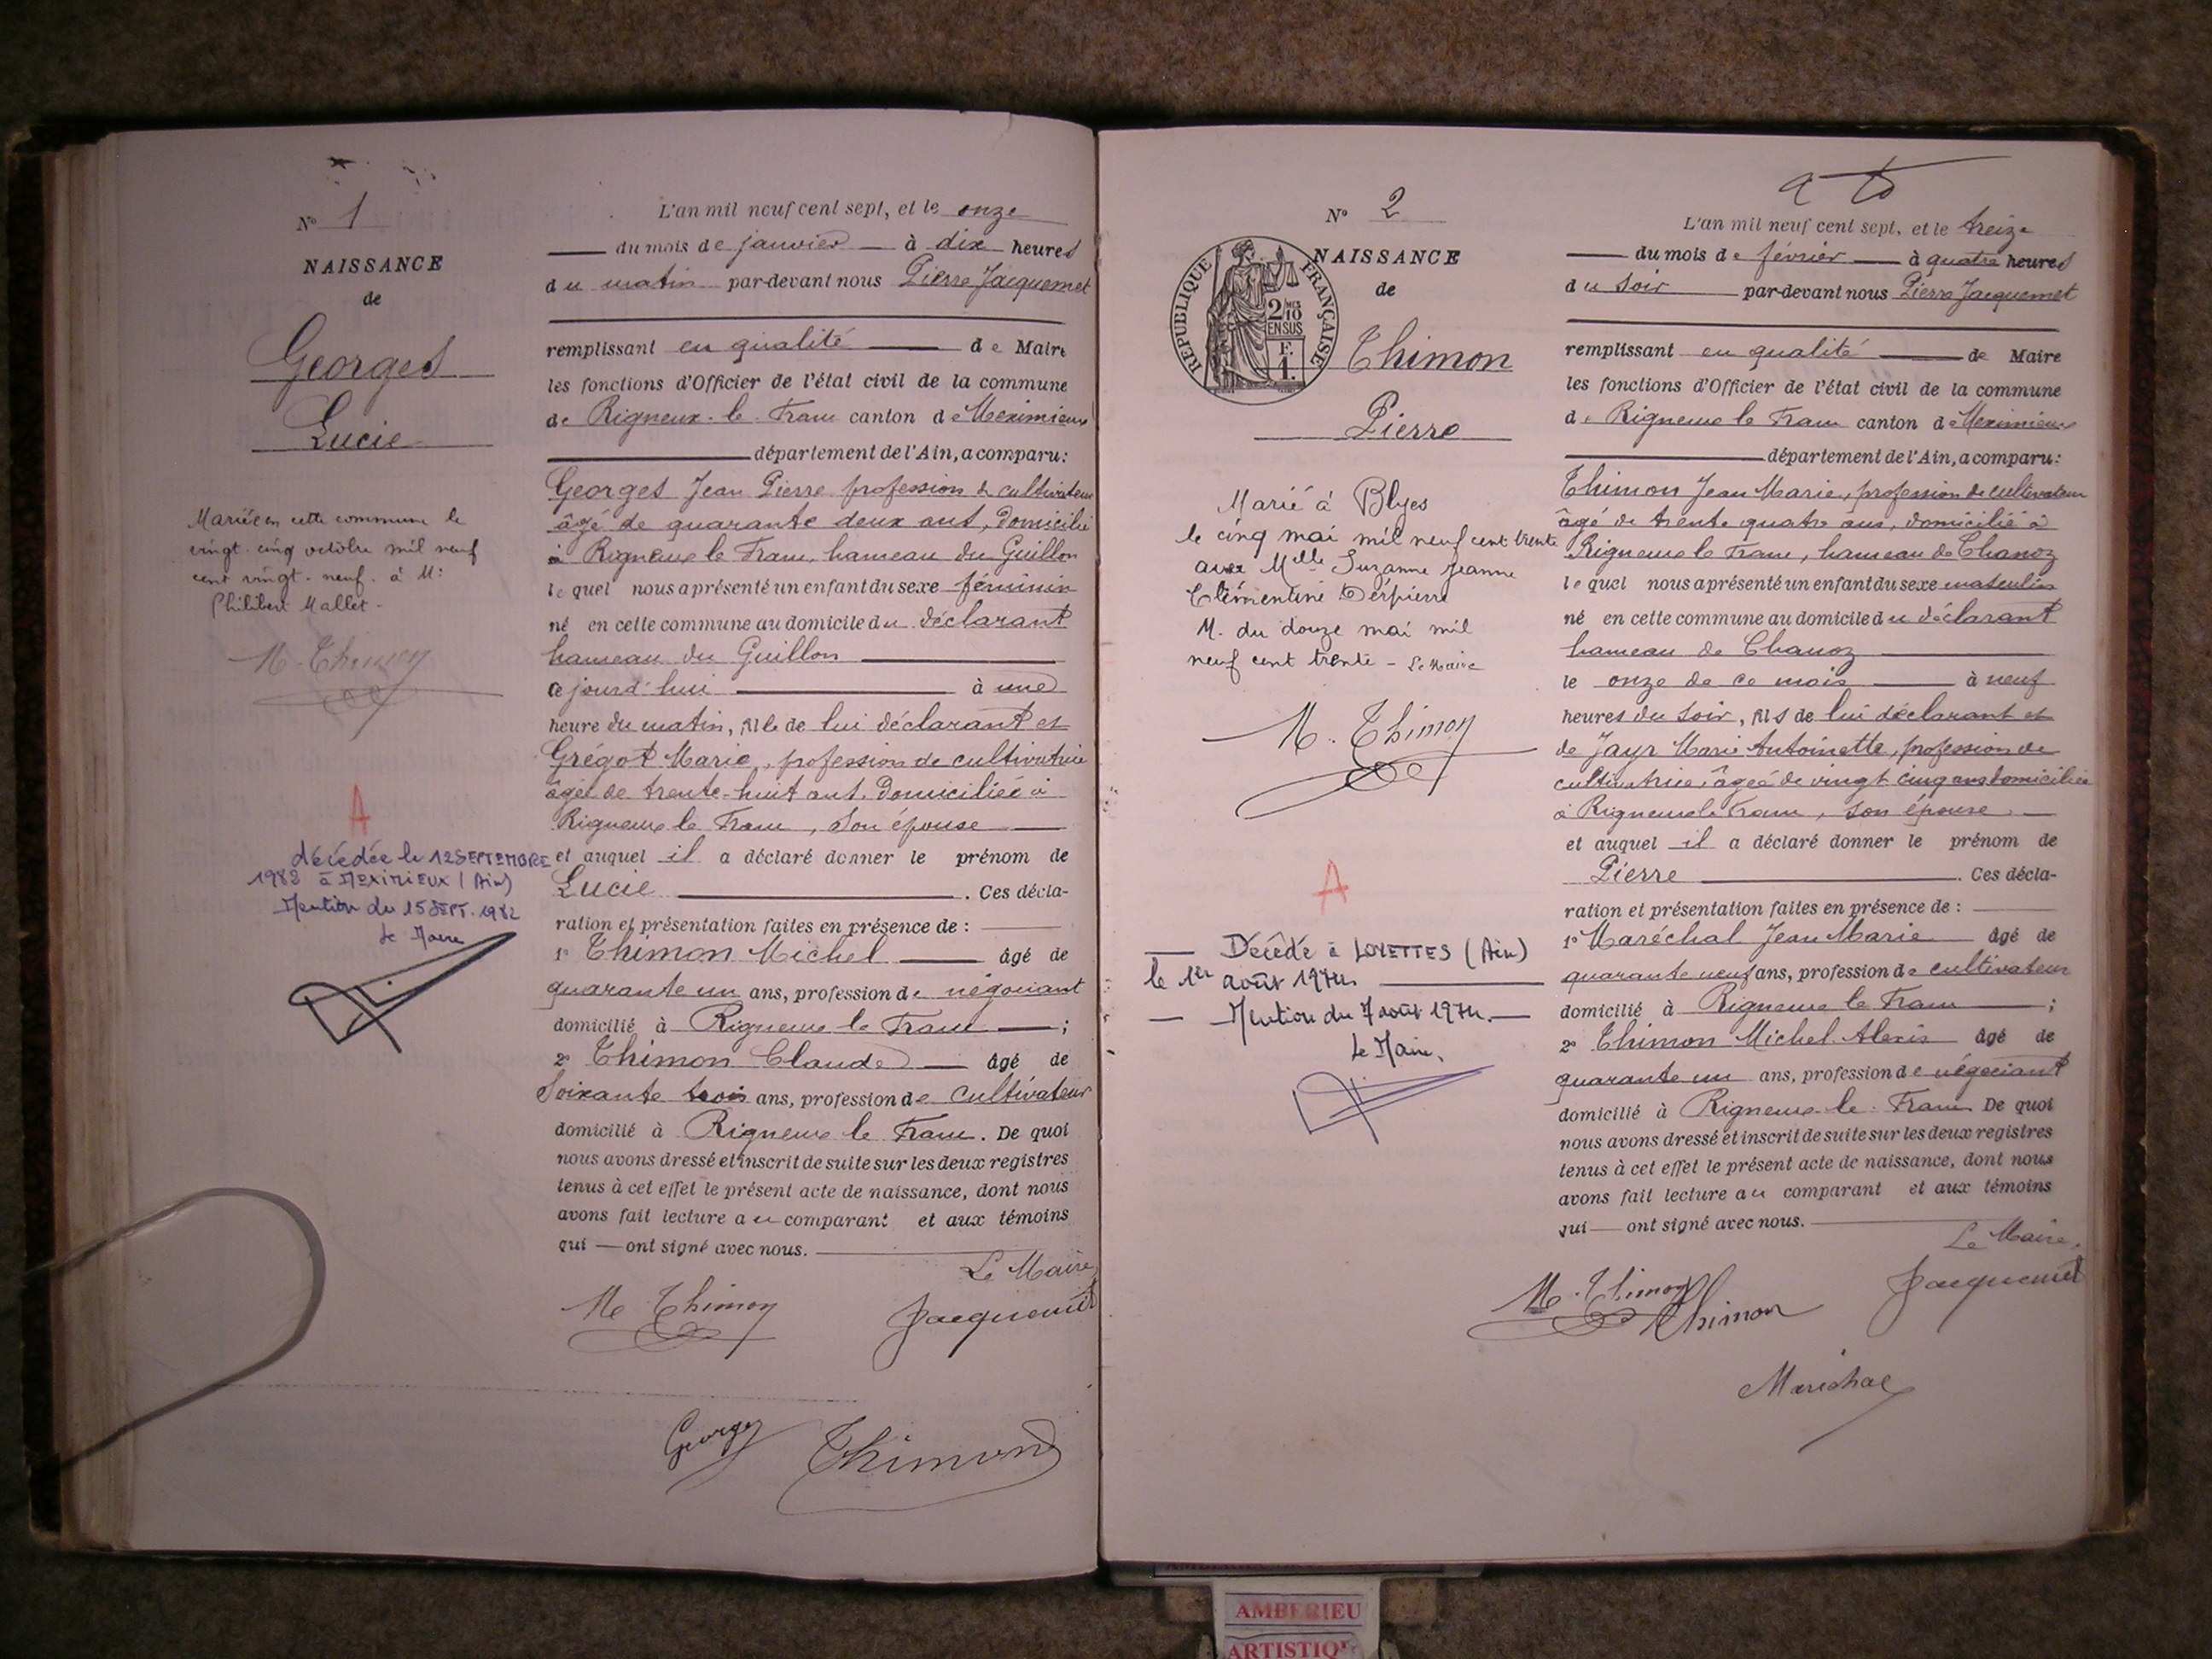 N° 1
NAISSANCE
de
Georges
Lucie
Mariée en cette commune le
vingt-cinq octobre mil neuf
cent vingt-neuf à M:
Philibert Mallet.
M. Thimon
A
décédée le 12 SEPTEMBRE
1982 à MEXIMIEUX (Ain)
Mention du 15 SEPT. 1982
Le Maire
L'an mil neuf cent sept, et le onze
du mois de janvier à dix heures
du matin par-devant nous Pierre Jacquemet
remplissant en qualité de Maire
les fonctions d'Officier de l'état civil de la commune
de Rigneux-le-Franc canton de Meximieux
département de l'Ain, a comparu:
Georges Jean Pierre profession de cultivateur
âgé de quarante deux ans, domicilié
à Rigneux le Franc, hameau du Guillon
lequel nous a présenté un enfant du sexe féminin
né en cette commune au domicile du déclarant
hameau du Guillon
ce jourd'hui à une
heure du matin, fille de lui déclarant et
Grégot Marie, profession de cultivatrice
âgée de trente-huit ans, domiciliée à
Rigneux le Franc, son épouse
et auquel il a déclaré donner le prénom de
Lucie. Ces décla-
ration et présentation faites en présence de :
1° Thimon Michel âgé de
quarante un ans, profession de négociant
domicilié à Rigneux le Franc ;
2° Thimon Claude âgé de
soixante trois ans, profession de cultivateur
domicilié à Rigneux le Franc. De quoi
nous avons dressé et inscrit de suite sur les deux registres
tenus à cet effet le présent acte de naissance, dont nous
avons fait lecture au comparant et aux témoins
qui — ont signé avec nous.
Le Maire
M Thimon Jacquemet
Georges Thimon
N° 2
NAISSANCE
de
RÉPUBLIQUE FRANÇAISE
2/10
EN SUS
F.
1.
Thimon
Pierre
Marié à Blyes
le cinq mai mil neuf cent trente
avec Melle Suzanne Jeanne
Clémentine Derpierre
M. du douze mai mil
neuf cent trente - Le Maire
M. Thimon
A
Décédé à LOYETTES (Ain)
le 1er août 1974.
Mention du 7 août 1974.
Le Maire,
L'an mil neuf cent sept, et le treize
du mois de février à quatre heures
du soir par-devant nous Pierre Jacquemet
remplissant en qualité de Maire
les fonctions d'Officier de l'état civil de la commune
de Rigneux le Franc canton de Meximieux
département de l'Ain, a comparu:
Thimon Jean Marie, profession de cultivateur
âgé de trente quatre ans, domicilié à
Rigneux le Franc, hameau de Chanoz
lequel nous a présenté un enfant du sexe masculin
né en cette commune au domicile du déclarant
hameau de Chanoz
le onze de ce mois à neuf
heures du soir, fils de lui déclarant et
de Jayr Marie Antoinette, profession de
cultivatrice, âgée de vingt cinq ans domiciliée
à Rigneux le Franc, son épouse
et auquel il a déclaré donner le prénom de
Pierre. Ces décla-
ration et présentation faites en présence de :
1° Maréchal Jean Marie âgé de
quarante neuf ans, profession de cultivateur
domicilié à Rigneux le Franc ;
2° Thimon Michel Alexis âgé de
quarante un ans, profession de négociant
domicilié à Rigneux-le-Franc De quoi
nous avons dressé et inscrit de suite sur les deux registres
tenus à cet effet le présent acte de naissance, dont nous
avons fait lecture au comparant et aux témoins
qui — ont signé avec nous.
Le Maire,
M. Thimon Thimon Jacquemet
Maréchal
AMBERIEU